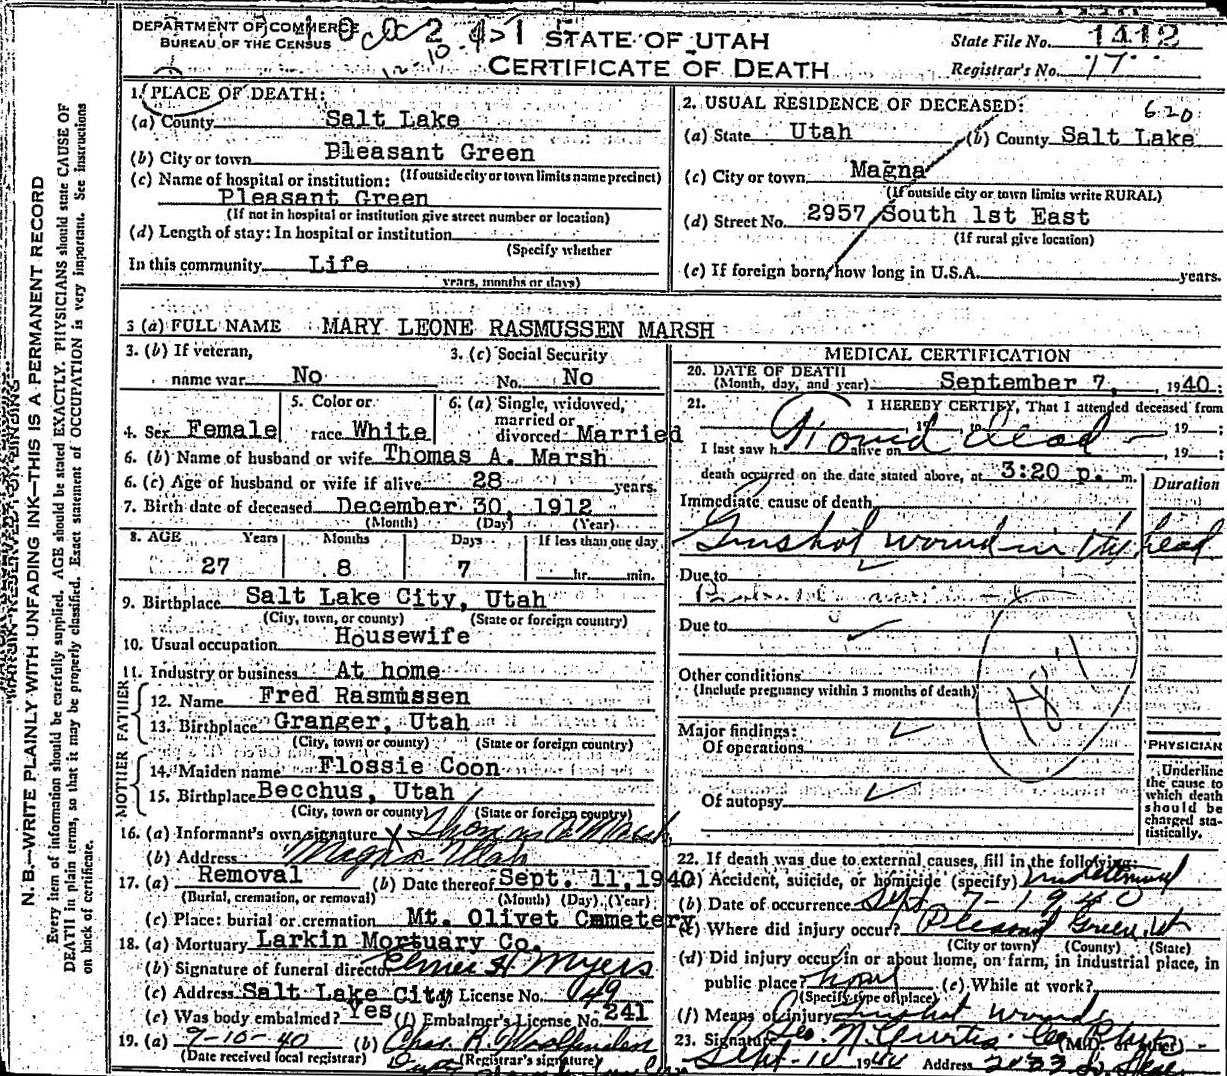 DEPARTMENT OF COMMERCE
BUREAU OF THE CENSUS
STATE OF UTAH
CERTIFICATE OF DEATH
State File No. 1412
Registrar's No. 17
1. PLACE OF DEATH:
(a) County Salt Lake
(b) City or town Pleasant Green
(If outside city or town limits name precinct)
(c) Name of hospital or institution:
Pleasant Green
(If not in hospital or institution give street number or location)
(d) Length of stay: In hospital or institution
(Specify whether
In this community Life
years, months or days)
2. USUAL RESIDENCE OF DECEASED:
620
(a) State Utah (b) County Salt Lake
(c) City or town Magna
(If outside city or town limits write RURAL)
(d) Street No. 2957 South 1st East
(If rural give location)
(e) If foreign born, how long in U.S.A. years.
3 (a) FULL NAME MARY LEONE RASMUSSEN MARSH
3. (b) If veteran,
name war No
3. (c) Social Security
No. No
4. Sex Female
5. Color or
race White
6. (a) Single, widowed,
married or
divorced Married
6. (b) Name of husband or wife Thomas A. Marsh
6. (c) Age of husband or wife if alive 28 years.
7. Birth date of deceased December 30, 1912
(Month) (Day) (Year)
8. AGE Years Months Days If less than one day
27 8 7 hr. min.
9. Birthplace Salt Lake City, Utah
(City, town, or county) (State or foreign country)
10. Usual occupation Housewife
11. Industry or business At home
FATHER
12. Name Fred Rasmussen
13. Birthplace Granger, Utah
(City, town or county) (State or foreign country)
MOTHER
14. Maiden name Flossie Coon
15. Birthplace Becchus, Utah
(City, town or county) (State or foreign country)
16. (a) Informant's own signature X Thomas A Marsh
(b) Address Magna Utah
17. (a) Removal (b) Date thereof Sept. 11, 1940
(Burial, cremation, or removal) (Month) (Day) (Year)
(c) Place: burial or cremation Mt. Olivet Cemetery
18. (a) Mortuary Larkin Mortuary Co.
(b) Signature of funeral director Elmer H Myers
(c) Address Salt Lake City License No. 049
(e) Was body embalmed? Yes (f) Embalmer's License No. 241
19. (a) 9-10-40 (b) Chas. R. Woolfenden
(Date received local registrar) (Registrar's signature)
MEDICAL CERTIFICATION
20. DATE OF DEATH
(Month, day, and year) September 7, 1940
21. I HEREBY CERTIFY, That I attended deceased from
Found dead 19 ;
I last saw h alive on , 19 ;
death occurred on the date stated above, at 3:20 p. m.
Duration
Immediate cause of death
Gunshot wound in the head
Due to
Due to
Other conditions
(Include pregnancy within 3 months of death)
Major findings:
Of operations
Of autopsy
PHYSICIAN
Underline
the cause to
which death
should be
charged sta-
tistically.
22. If death was due to external causes, fill in the following:
(a) Accident, suicide, or homicide (specify) undetermined
(b) Date of occurrence Sept 7-1940
(c) Where did injury occur? Pleasant Green, Ut
(City or town) (County) (State)
(d) Did injury occur in or about home, on farm, in industrial place, in
public place? home (e) While at work?
(Specify type of place)
(f) Means of injury Gunshot wounds
23. Signature Geo. N. Curtis
(M.D. or other)
Sept-10 1940 Address
N. B.—WRITE PLAINLY WITH UNFADING INK—THIS IS A PERMANENT RECORD
Every item of information should be carefully supplied. AGE should be stated EXACTLY. PHYSICIANS should state CAUSE OF
DEATH in plain terms, so that it may be properly classified. Exact statement of OCCUPATION is very important. See instructions
on back of certificate.